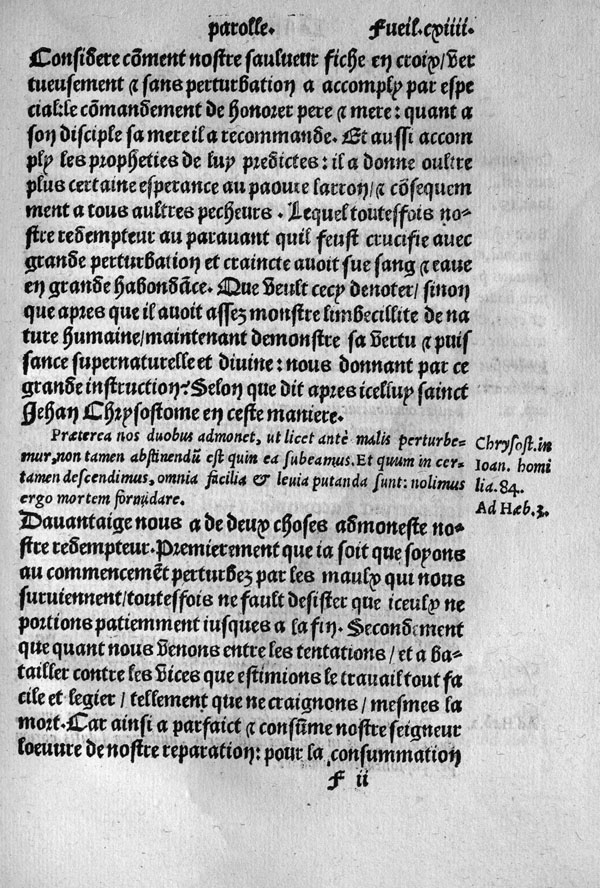 parolle. Fueil. cxiiii.
Considere cõment nostre saulueur fiche en croix/ver
tueusement & sans perturbation a accomply par espe
cial:le cõmandement de honorer pere & mere: quant a
son disciple sa mere il a recommande. Et aussi accom
ply les propheties de luy predictes: il a donne oultre
plus certaine esperance au paoure larron/& cõsequem
ment a tous aultres pecheurs. Lequel toutesfois no-
stre redempteur au parauant quil feust crucifie auec
grande perturbation et craincte auoit sue sang & eaue
en grande habondãce. Que veult cecy denoter/sinon
que apres que il auoit assez monstre limbecillite de na
ture humaine/maintenant demonstre sa vertu & puis
sance supernaturelle et divine: nous donnant par ce
grande instruction? Selon que dit apres icelluy sainct
Jehan Chrysostome en ceste maniere.
Præterea nos duobus admonet, ut licet antè malis perturbe-
mur, non tamen abstinendũ est quin ea subeamus. Et quum in cer-
tamen descendimus, omnia facilia & leuia putanda sunt: nolimus
ergo mortem formidare.
Chrysost. in
Ioan. homi
lia. 84.
Ad Hæb. 3.
Dauantaige nous a de deux choses admoneste no-
stre redempteur. Premierement que ia soit que soyons
au commencemẽt perturbez par les maulx qui nous
suruiennent/toutesfois ne fault desister que iceulx ne
portions patiemment iusques a la fin. Secondement
que quant nous venons entre les tentations/et a ba-
tailler contre les vices que estimions le trauail tout fa
cile et legier/tellement que ne craignons/mesmes la
mort. Car ainsi a parfaict & consũme nostre seigneur
loeuure de nostre reparation: pour la consummation
F ii